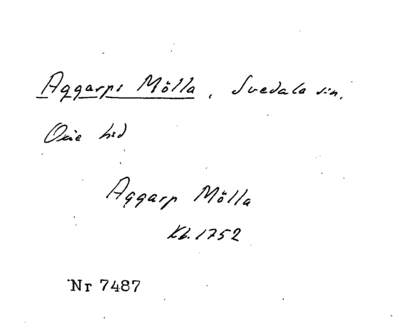 Aggarps Mölla, Svedala sn.
Oxie hd
Aggarp Mölla
Kb. 1752
Nr 7487